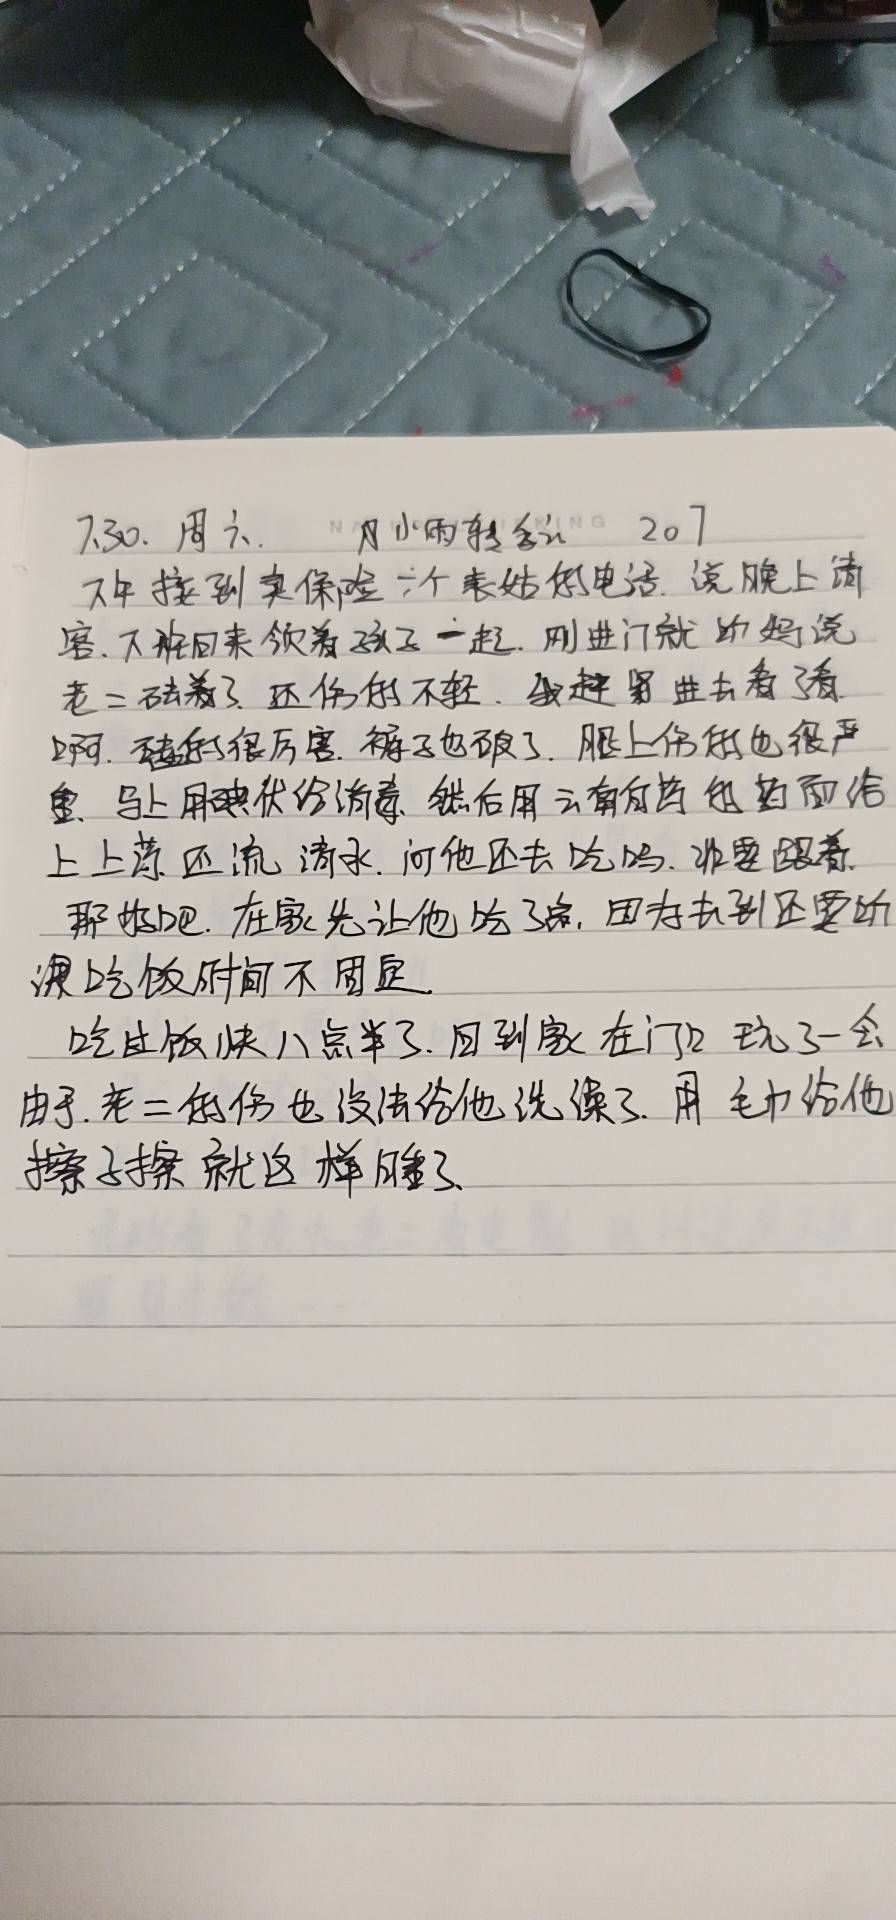 7.30. 周六. 小雨转多云 207
下午接到卖保险一个表姑的电话. 说晚上请
客. 下班回来领着孩子一起. 刚进门就听妈说
老二磕着了. 还伤的不轻. 我赶紧进去看了看.
啊. 磕的很厉害. 裤子也破了. 腿上伤的也很严
重. 马上用碘伏给消毒. 然后用云南白药的药面给
上上药. 还流清水. 问他还去吃吗. 非要跟着.
那好吧. 在家先让他吃了点. 因为去到还要听
课吃饭时间不固定.
吃过饭快八点半了. 回到家在门口玩了一会
由于. 老二的伤也没法给他洗澡了. 用毛巾给他
擦了擦就这样睡了.